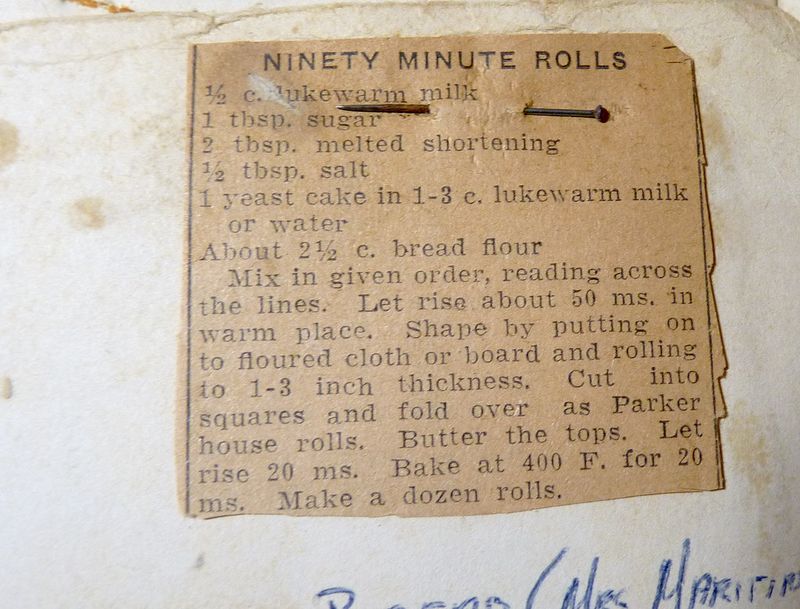 NINETY MINUTE ROLLS
½ c. lukewarm milk
1 tbsp. sugar
2 tbsp. melted shortening
½ tbsp. salt
1 yeast cake in 1-3 c. lukewarm milk
or water
About 2½ c. bread flour
Mix in given order, reading across
the lines. Let rise about 50 ms. in
warm place. Shape by putting on
to floured cloth or board and rolling
to 1-3 inch thickness. Cut into
squares and fold over as Parker
house rolls. Butter the tops. Let
rise 20 ms. Bake at 400 F. for 20
ms. Make a dozen rolls.
(Mrs